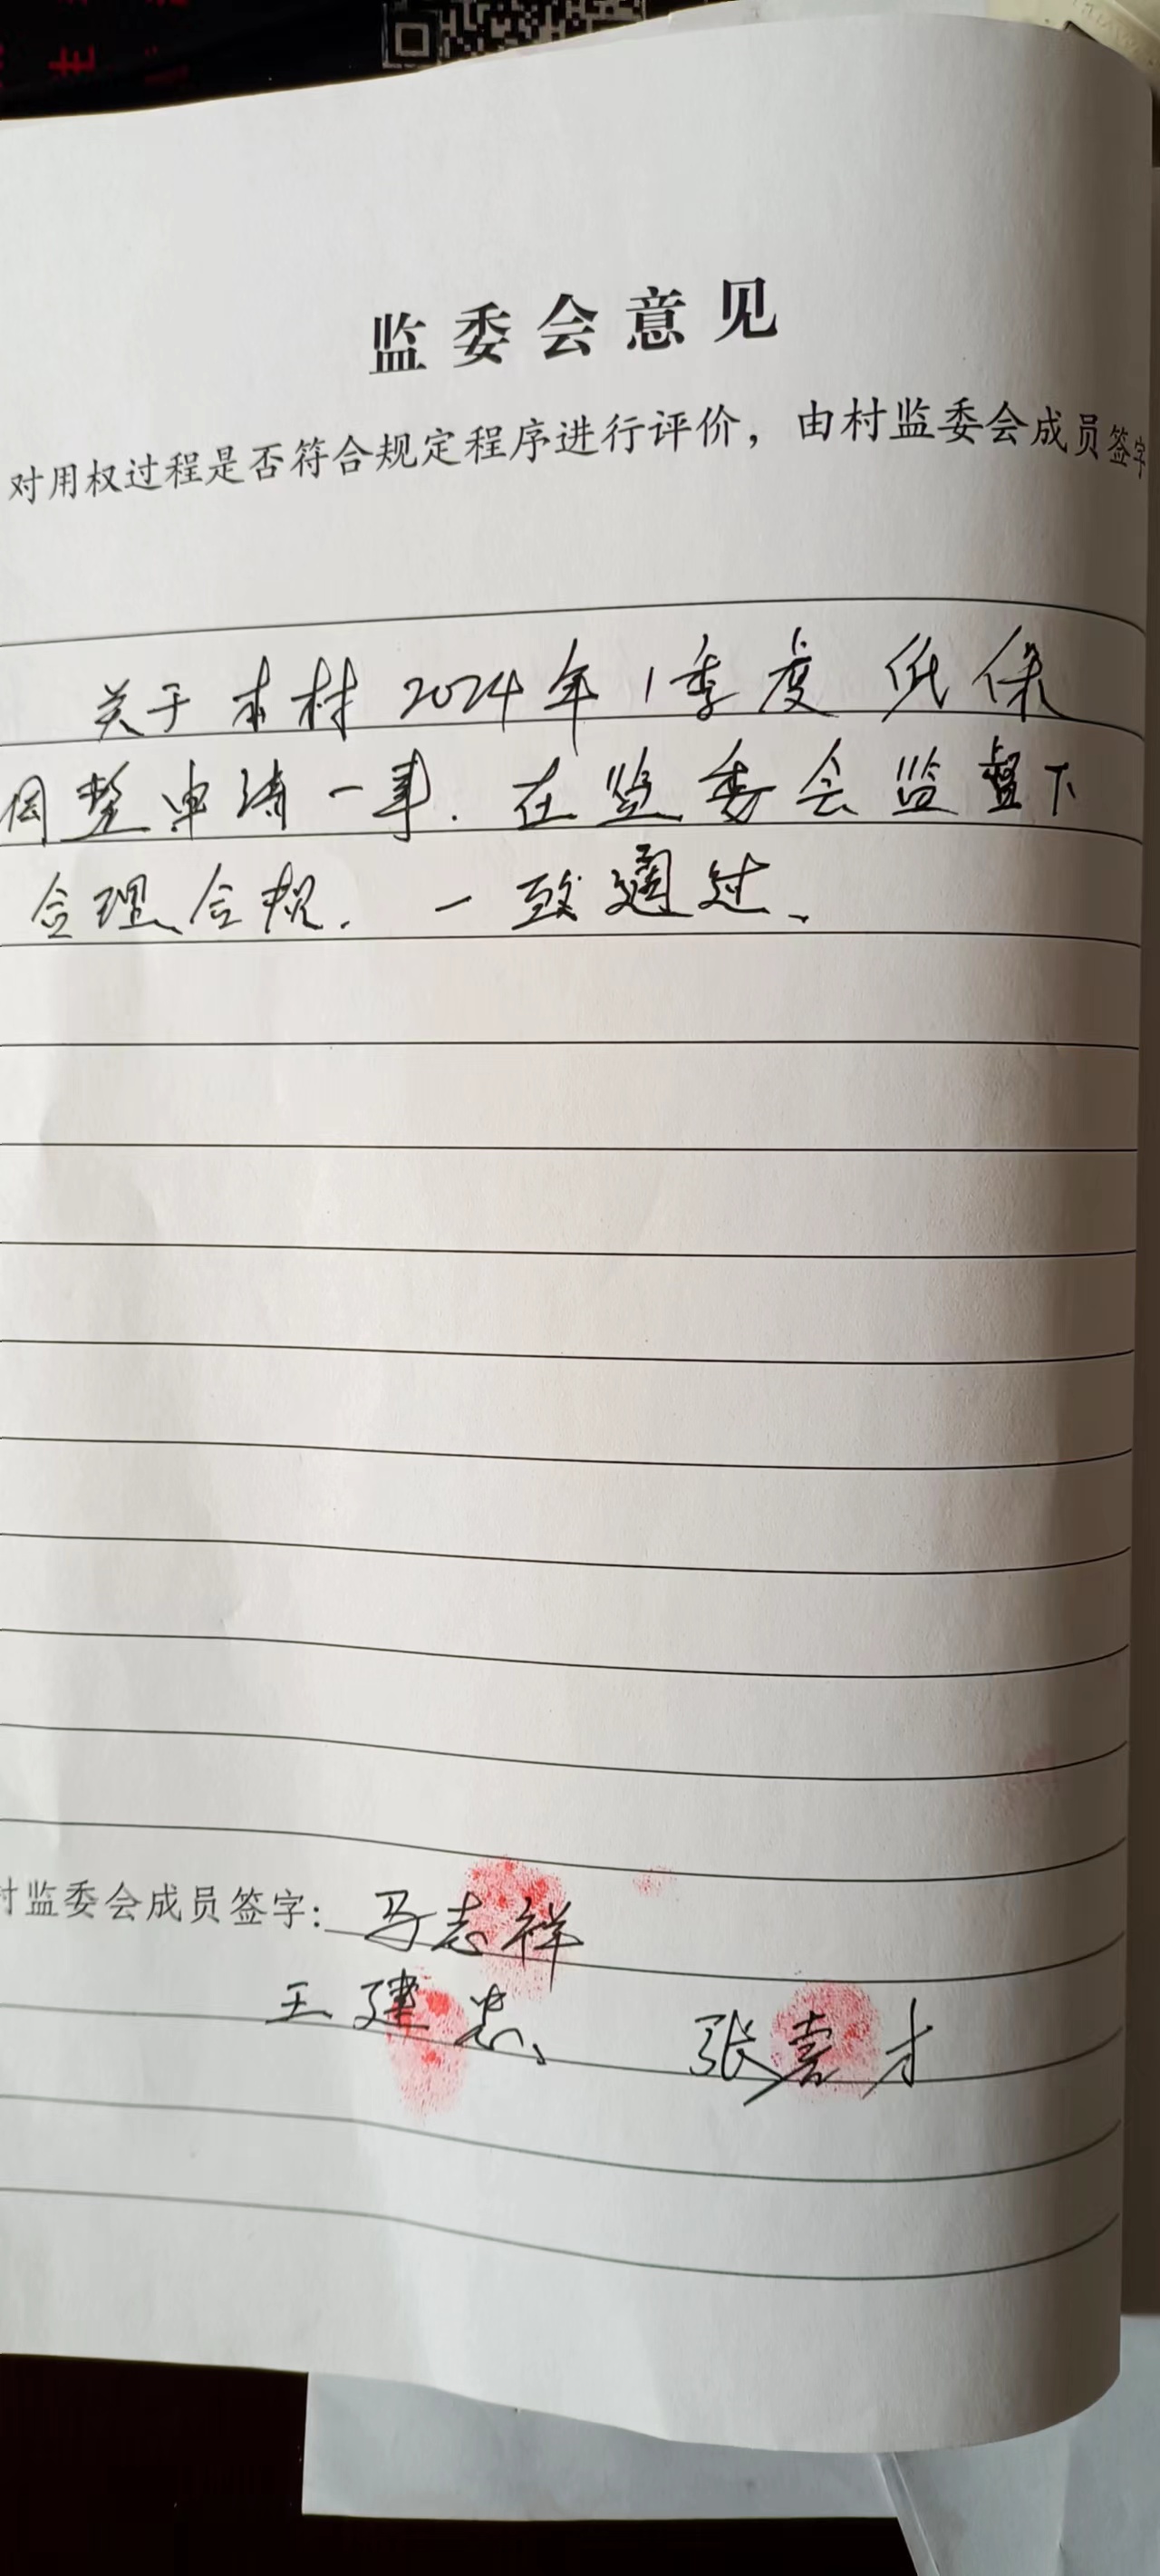 监委会意见
对用权过程是否符合规定程序进行评价，由村监委会成员签字
关于本村2024年1季度低保
调整申请一事.在监委会监督下
合理合规.一致通过、
村监委会成员签字：马志祥
王建忠、 张喜才